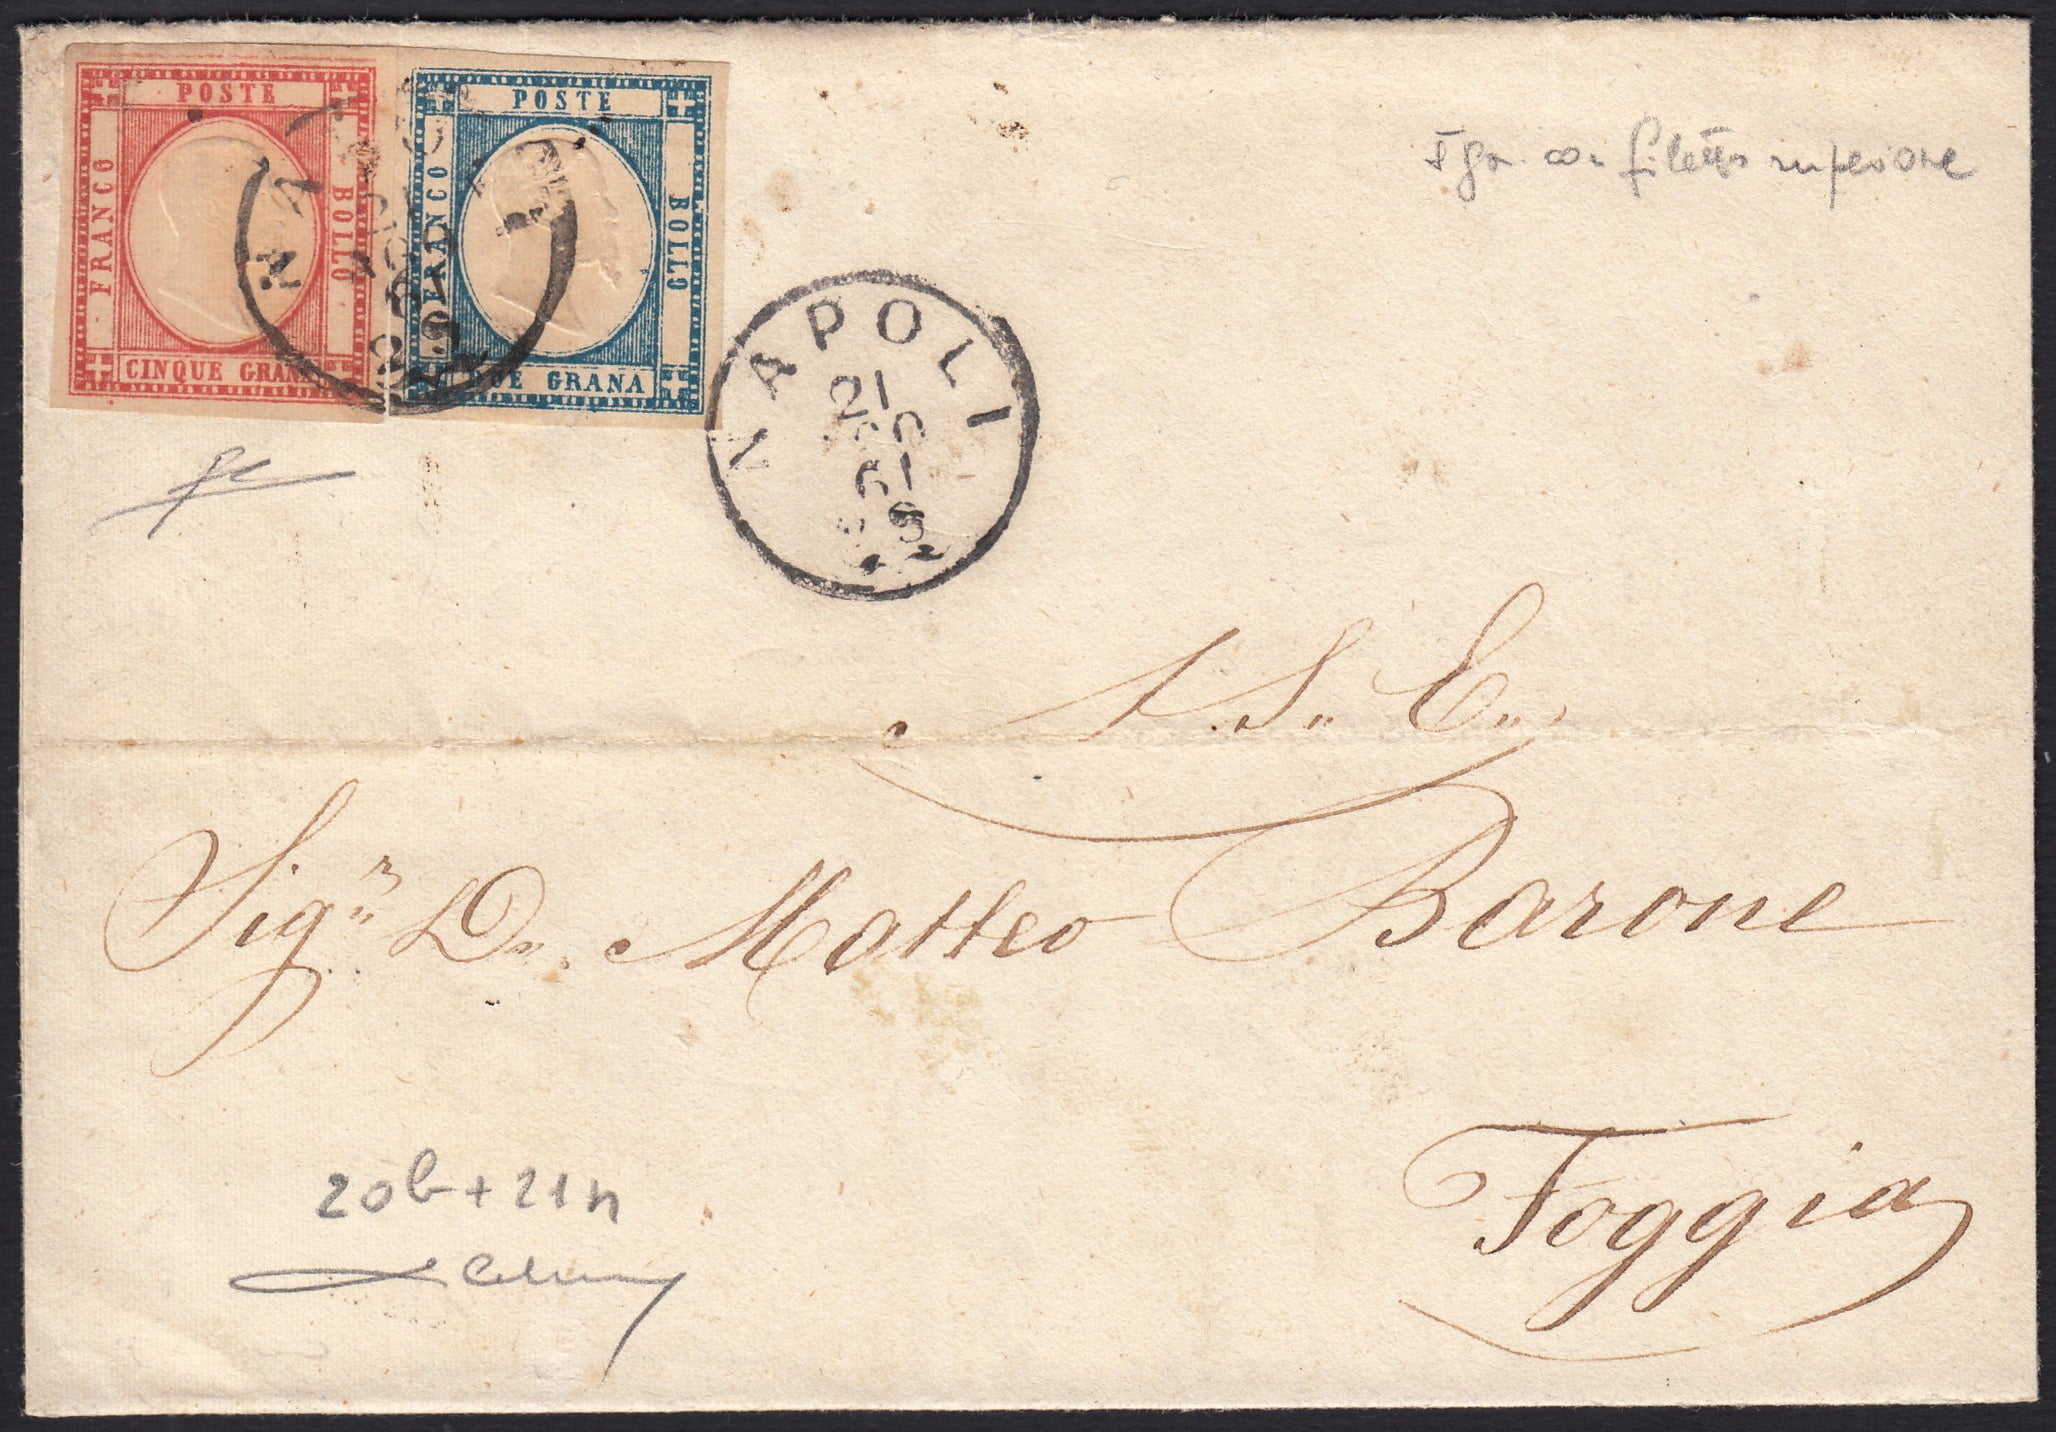 POSTE
FRANCO
BOLLO
CINQUE GRANA
POSTE
FRANCO
BOLLO
DUE GRANA
NAPOLI
21
61
5 gr. con filetto superiore
A. S. E.
Sigr. D. Matteo Barone
Foggia
20b+21n